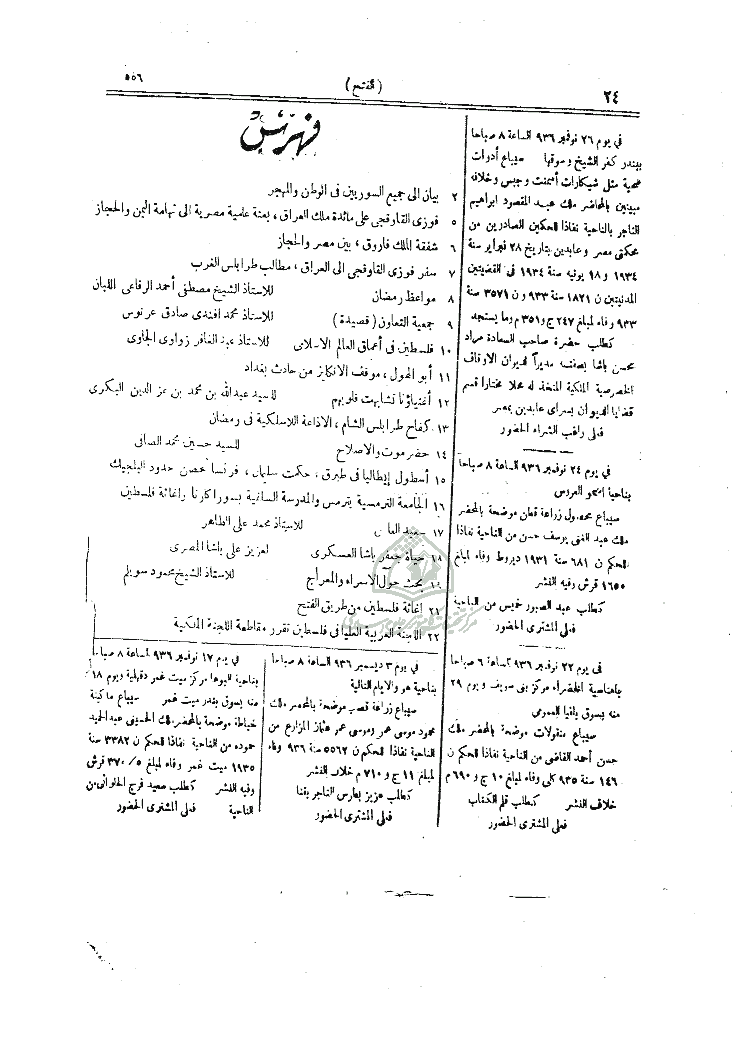 ٢٤
(الفتح)
٥٥٦
في يوم ٢٦ نوفمبر ٩٣٦ الساعة ٨ صباحا
ببندر كفر الشيخ وسوقها سيباع أدوات
صحية مثل شيكارات أسمنت وجبس وخلافه
مبينين بالمحاضر ملك عبد المقصود ابراهيم
التاجر بالناحية نفاذا للحكمين الصادرين من
محكمتي مصر وعابدين بتاريخ ٢٨ فبراير سنة
١٩٣٤ و ١٨ يونيه سنة ١٩٣٤ في القضيتين
المدنيتين ن ١٨٢١ سنة ٩٣٣ و ن ٣٥٧١ سنة
٩٣٣ وفاء لمبلغ ٢٤٧ ج و ٣٥١ م وما يستجد
كطلب حضرة صاحب السعادة مراد
محسن باشا بصفته مديراً لديوان الاوقاف
الخصوصية الملكية المتخذ له محلا مختارا قسم
قضايا الديوان بسراى عابدين بمصر
فعلى راغب الشراء الحضور
في يوم ٢٤ نوفمبر ٩٣٦ الساعة ٨ صباحا
بناحية اسمو العروس
سيباع محصول زراعة قطن موضحة بالمحضر
ملك عبد الغنى يوسف حسن من الناحية نفاذا
للحكم ن ٦٨١ سنة ١٩٣١ ديروط وفاء لمبلغ
١٦٥٠ قرش وفيه النشر
كطلب عبد الصبور خميس من الناحية
فعلى المشترى الحضور
فى يوم ٢٢ نوفمبر ٩٣٦ الساعة ٦ صباحا
باهناسية الخضراء مركز بنى سويف ويوم ٢٩
منه بسوق باقيا العمومي
سيباع منقولات موضحة بالمحضر ملك
حسن أحمد القاضى من الناحية نفاذا للحكم ن
١٤٦ سنة ٩٣٥ كلى وفاء لمبلغ ١٠ ج و ٦٩٠ م
خلاف النشر كطلب قلم الكتاب
فعلى المشترى الحضور
فهرس
٢ بيان الى جميع السوريين فى الوطن والمهجر
٥ فوزى القاوقجى على مائدة ملك العراق، بعثة علمية مصرية الى تهامة اليمن والحجاز
٦ شفقة الملك فاروق، بين مصر والحجاز
٧ سفر فوزى القاوقجى الى العراق، مطالب طرابلس الغرب
٨ مواعظ رمضان للاستاذ الشيخ مصطفى أحمد الرفاعى اللبان
٩ جمعية التعاون (قصيدة) للاستاذ محمد افندى صادق عرنوس
١٠ فلسطين فى أعماق العالم الاسلامى للاستاذ عبد الغافر زواوى الجاوى
١١ أبو الهول، موقف الانكليز من حادث بغداد
١٢ أغنياؤنا تشابهت قلوبهم للسيد عبدالله بن محمد بن عز الدين البكرى
١٣ كفاح طرابلس الشام، الاذاعة اللاسلكية فى رمضان
١٤ حضرموت والاصلاح للسيد حسين محمد الصافى
١٥ أسطول إيطاليا فى طبرق، حكمت سليمان، فرنسا تحصن حدود البلجيك
١٦ الجامعة الترمسية بترمس والمدرسة السانية بسوراكرتا واغاثة فلسطين
١٧ سعيد العاص للاستاذ محمد على الطاهر
١٨ حياة جعفر باشا العسكرى لعزيز على باشا المصرى
١٩ بحث حول الاسراء والمعراج للاستاذ الشيخ محمود سويلم
٢١ إغاثة فلسطين من طريق الفتح
٢٢ اللجنة العربية العليا فى فلسطين تقرر مقاطعة اللجنة الملكية
فى يوم ٣ ديسمبر ٩٣٦ الساعة ٨ صباحا
بناحية هو والايام التالية
سيباع زراعة قصب موضحة بالمحضر ملك
محمود موسى عمر وموسى عمر عثمان المزارع من
الناحية نفاذا للحكم ن ٥٥٦٢ سنة ٩٣٦ وفاء
لمبلغ ١١ ج و ٧١٠ م خلاف النشر
كطلب عزيز بطارس التاجر بقنا
فعلى المشترى الحضور
فى يوم ١٧ نوفمبر ٩٣٦ الساعة ٨ صباحا
بناحية البوها مركز ميت غمر دقهلية ويوم ١٨
منه بسوق بندر ميت غمر سيباع ماكينة
خياطة موضحة بالمحضر ملك الحسينى عبد الحميد
حموده من الناحية نفاذا للحكم ن ٣٣٨٢ سنة
١٩٣٥ ميت غمر وفاء لمبلغ ٣٧٠/٥ قرش
وفيه النشر كطلب سعيد فرج الحلوانى من
الناحية فعلى المشترى الحضور